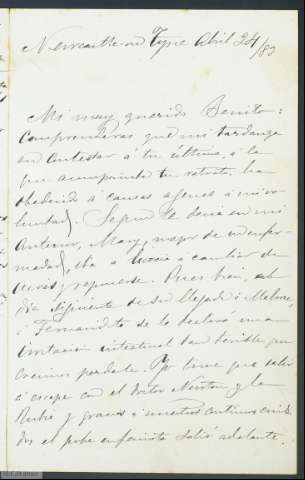 Newcastle-on Tyne Abril 24/83
Mi muy querido Benito:
Comprenderás que mi tardanza
en contestar á tu última, á la
que acompañaba tu retrato, ha
obedecido á causas agenas á mi vo-
luntad. Segun te decia en mi
anterior, Mary, mejor de su enfer-
medad, iba á á cambiar de
aires y reponerse. Pues bien, al
dia siguiente de su llegada á
á Fernandito se le declaró una
irritacion intestinal tan terrible que
creimos perderle. Yo tuve que salir
á escape con el doctor Newton y la
Rubia y gracias á nuestros continuos cuida-
dos el pobre enfermito salió adelante.